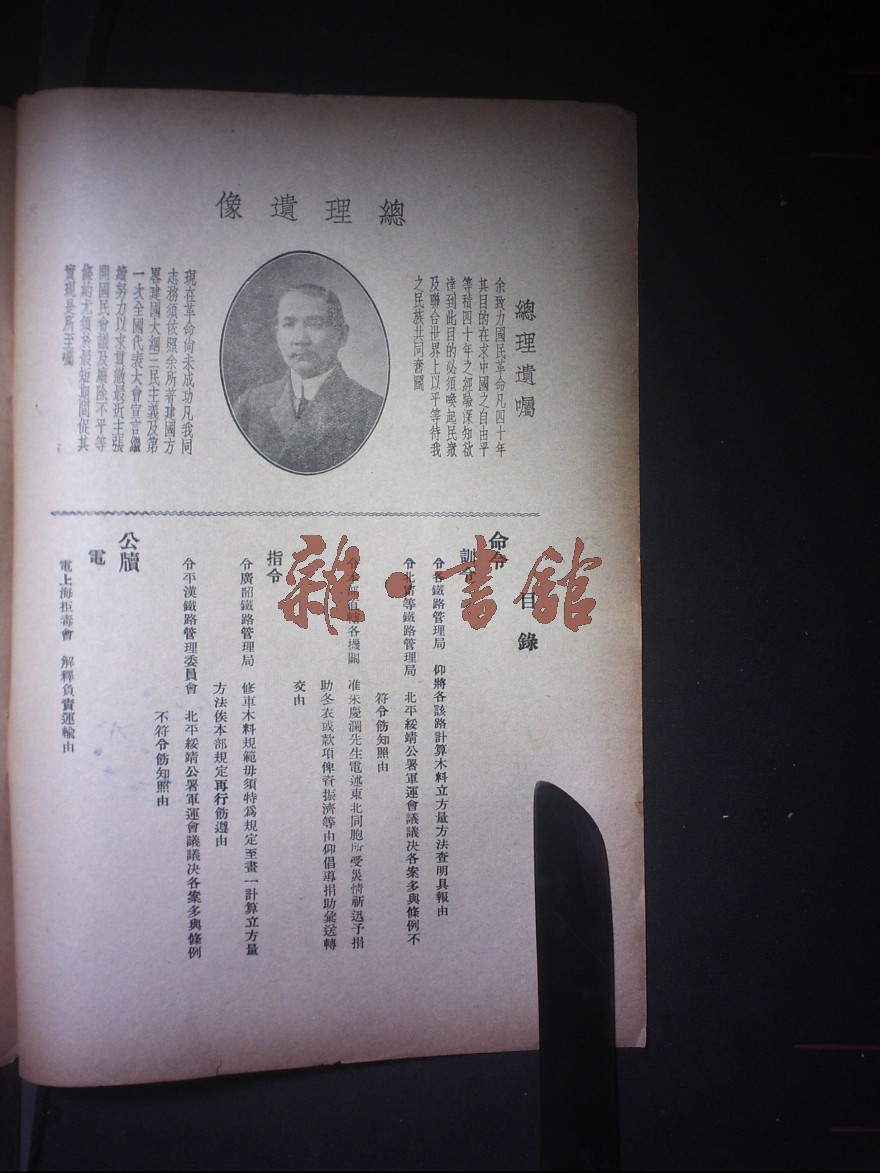 總理遺像
總理遺囑
余致力國民革命凡四十年
其目的在求中國之自由平
等積四十年之經驗深知欲
達到此目的必須喚起民衆
及聯合世界上以平等待我
之民族共同奮鬭
現在革命尚未成功凡我同
志務須依照余所著建國方
畧建國大綱三民主義及第
一次全國代表大會宣言繼
續努力以求貫澈最近主張
開國民會議及廢除不平等
條約尤須於最短期間促其
實現是所至囑
目錄
命令
訓令
令各鐵路管理局　仰將各該路計算木料立方量方法查明具報由
令北甯等鐵路管理局　北平綏靖公署軍運會議議決各案多與條例不
符令飭知照由
各機關　准朱慶瀾先生電述東北同胞所受災情祈迅予捐
助冬衣或款項俾資振濟等由仰倡導捐助彙送轉
交由
指令
令廣韶鐵路管理局　修車木料規範毋須特爲規定至畫一計算立方量
方法俟本部規定再行飭遵由
令平漢鐵路管理委員會　北平綏靖公署軍運會議議決各案多與條例
不符令飭知照由
公牘
電
電上海拒毒會　解釋負責運輸由
雜·書館